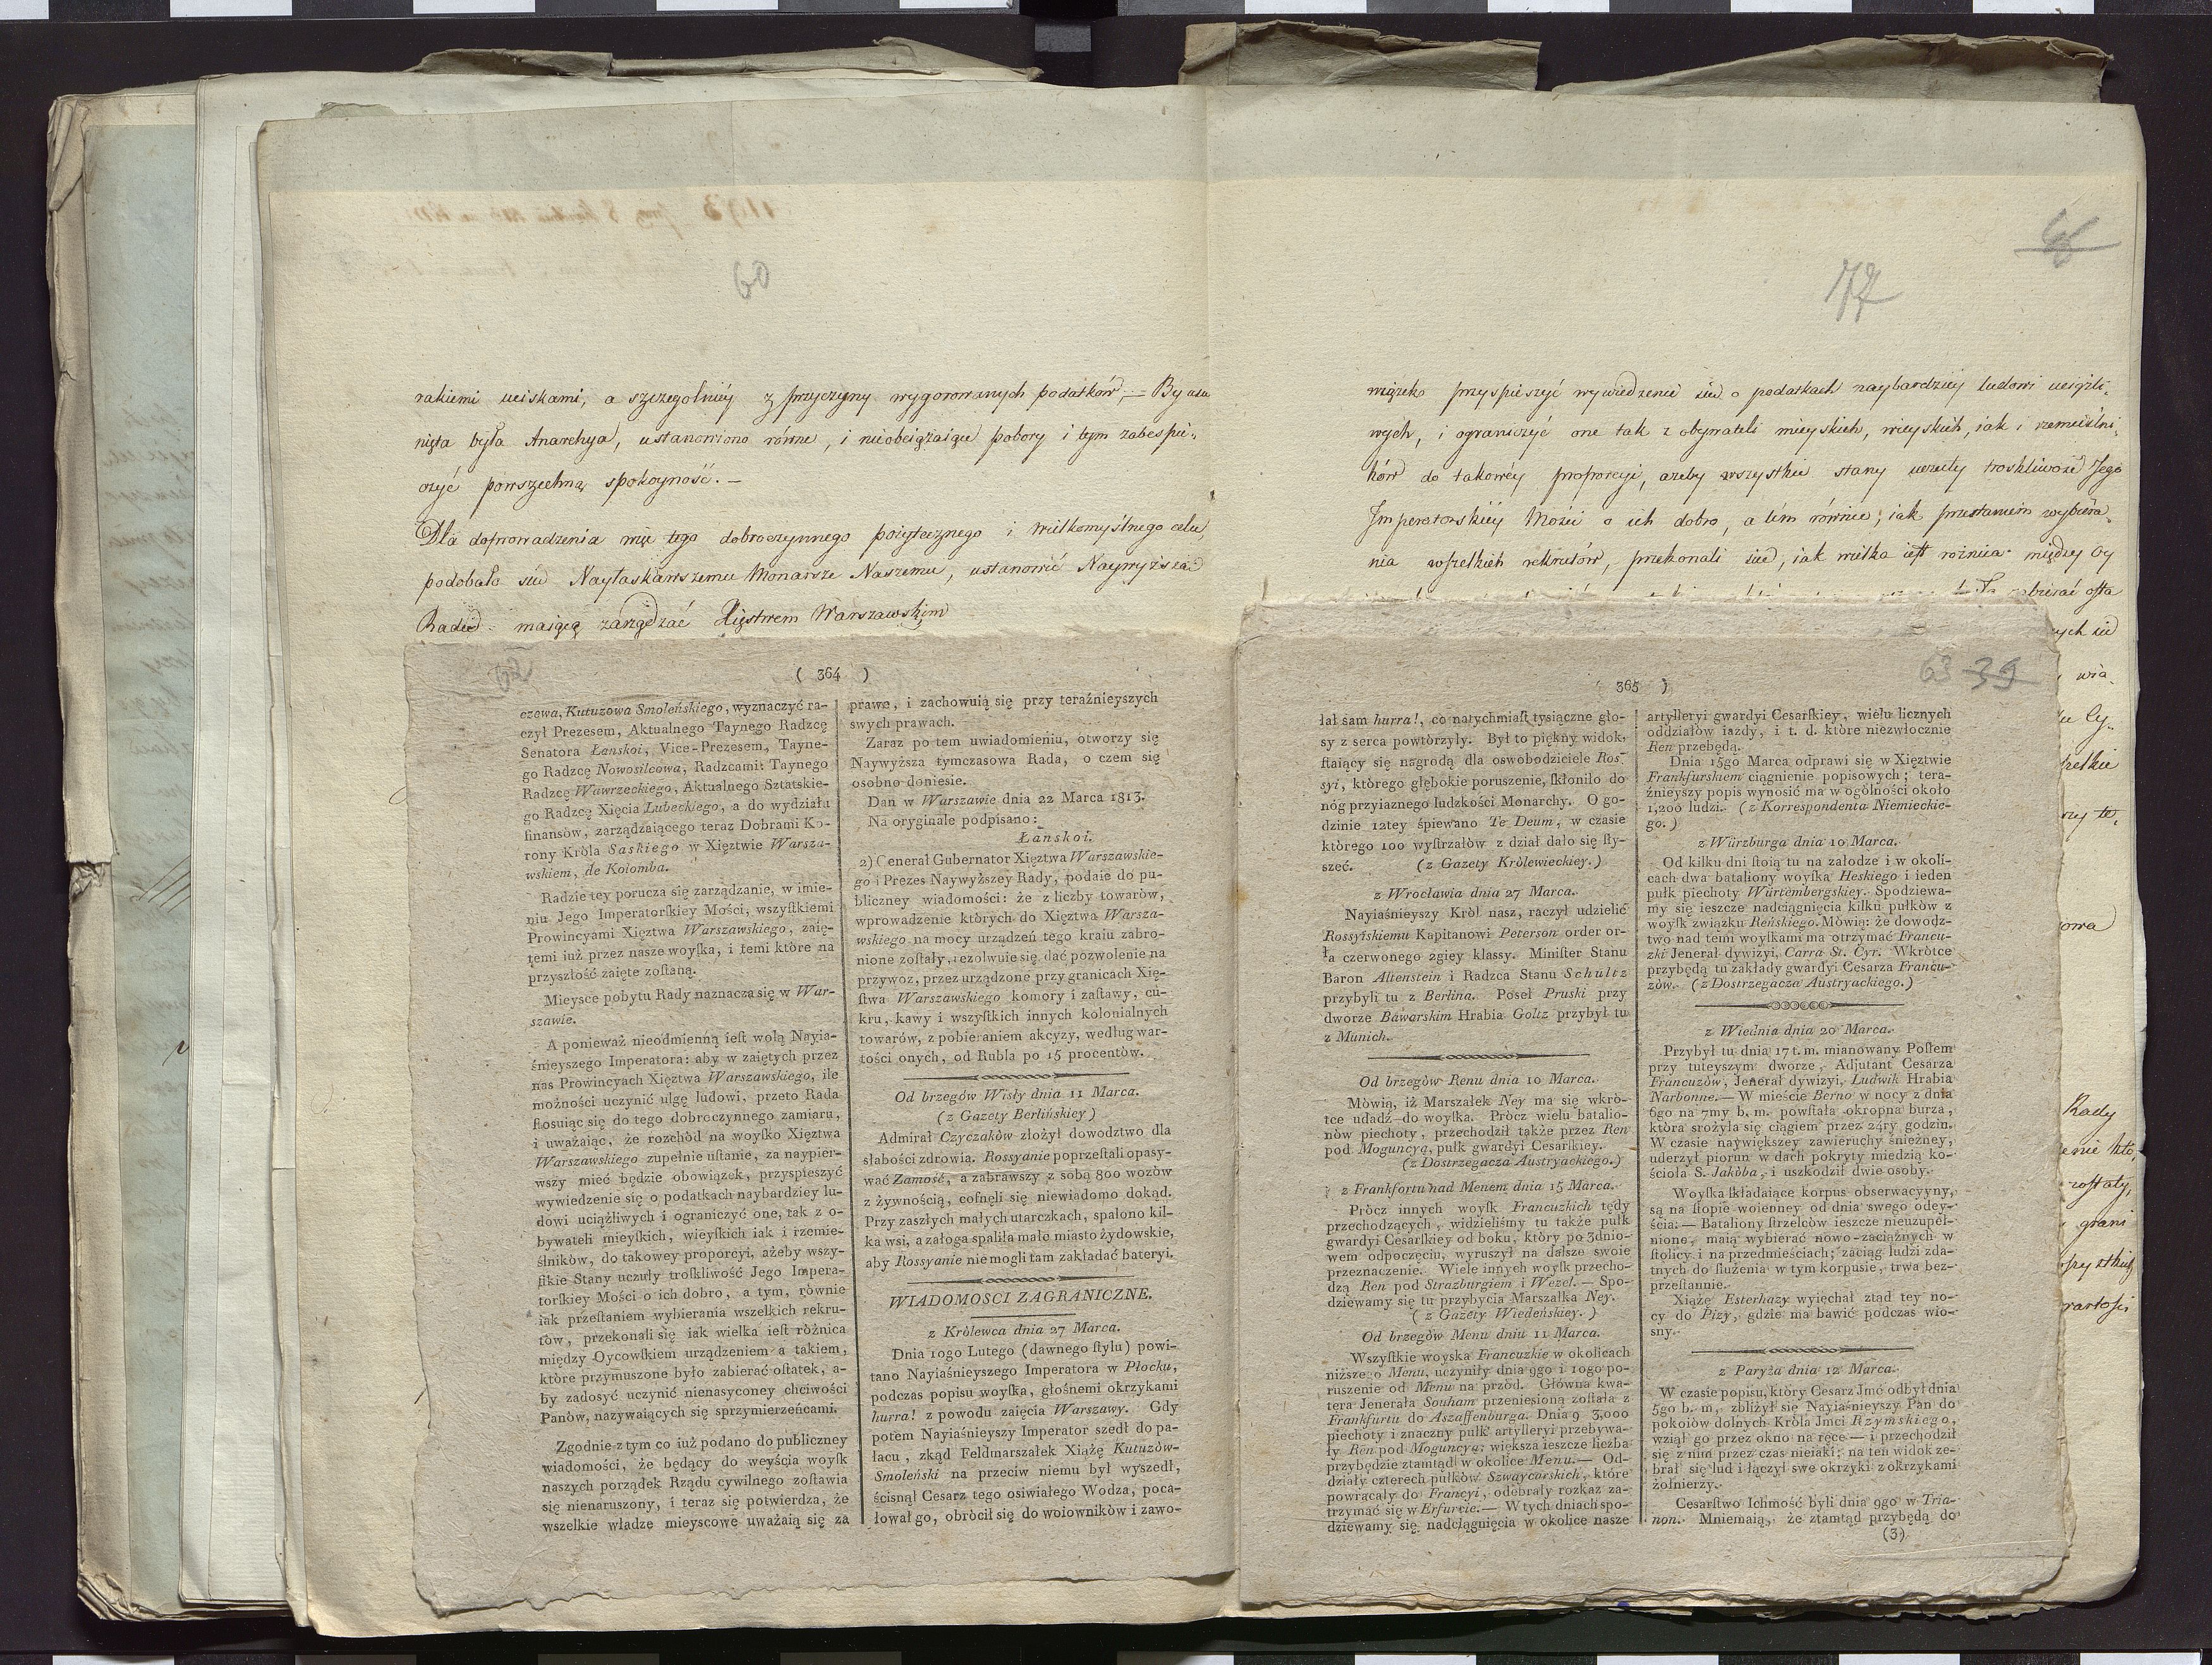 60
rakiemi uciskami, a szczegolniey z przyczyny wygorowanych podatków, — By usu
nięta była Anarchya, ustanowiono równe, i nieobciążaiące pobory i tym zabespie„
czyć powszechną spokoyność. —
Dla doprowadzenia tego dobroczynnego pożytecznego i wielkomyślnego celu,
podobało sie Nayłaskawszemu Monarsze Naszemu, ustanowić Naywyższą
Radę maiącą zarządzać Xięstwem Warszawskim
62
( 364 )
czewa, Kutuzowa Smoleńskiego, wyznaczyć ra-
czył Prezesem, Aktualnego Taynego Radzcę
Senatora Łanskoi, Vice-Prezesem, Tayne-
go Radzcę Nowosilcowa, Radzcami: Taynego
Radzcę Wawrzeckiego, Aktualnego Sztatskie-
go Radzcę Xięcia Lubeckiego, a do wydziału
finansów, zarządzaiącego teraz Dobrami Ko-
rony Króla Saskiego w Xięztwie Warsza-
wskiem, de Kolomba.
Radzie tey porucza się zarządzanie, w imie-
niu Jego Imperatorſkiey Mości, wszyſtkiemi
Prowincyami Xięztwa Warszawskiego, zaię-
temi iuż przez nasze woyſka, i temi które na
przyszłość zaięte zoſtaną.
Mieysce pobytu Rady naznacza się w War-
szawie.
A ponieważ nieodmienną ieſt wolą Nayia-
śnieyszego Imperatora: aby w zaiętych przez
nas Prowincyach Xięztwa Warszawskiego, ile
możności uczynić ulgę ludowi, przeto Rada
ſtosuiąc się do tego dobroczynnego zamiaru,
i uważaiąc, że rozchód na woyſko Xięztwa
Warszawskiego zupełnie uſtanie, za naypier-
wszy mieć będzie obowiązek, przyspieszyć
wywiedzenie się o podatkach naybardziey lu-
dowi uciążliwych i ograniczyć one, tak z o-
bywateli mieyſkich, wieyſkich iak i rzemie-
ślników, do takowey proporcyi, ażeby wszy-
ſtkie Stany uczuły troſkliwość Jego Impera-
torſkiey Mości o ich dobro, a tym, równie
iak przeſtaniem wybierania wszelkich rekru-
tów, przekonali się iak wielka ieſt różnica
między Oycowſkiem urządzeniem a takiem,
które przymuszone było zabierać oſtatek, a-
by zadosyć uczynić nienasyconey chciwości
Panów, nazywaiących się sprzymierzeńcami.
Zgodnie z tym co iuż podano do publiczney
wiadomości, że będący do weyścia woyſk
naszych porządek Rządu cywilnego zoſtawia
się nienaruszony, i teraz się potwierdza, że
wszelkie władze mieyscowe uważaią się za
prawe, i zachowuią się przy teraźnieyszych
swych prawach.
Zaraz po tem uwiadomieniu, otworzy się
Naywyższa tymczasowa Rada, o czem się
osobno doniesie.
Dan w Warszawie dnia 22 Marca 1813.
Na oryginale podpisano:
Łanskoi.
2) Generał Gubernator Xięztwa Warszawskie-
go i Prezes Naywyższey Rady, podaie do pu-
bliczney wiadomości: że z liczby towarów,
wprowadzenie których do Xięztwa Warsza-
wskiego na mocy urządzeń tego kraiu zabro-
nione zoſtały, rezolwuie się dać pozwolenie na
przywoz, przez urządzone przy granicach Xię-
ſtwa Warszawskiego komory i zaſtawy, cu-
kru, kawy i wszyſtkich innych kolonialnych
towarów, z pobieraniem akcyzy, według war-
tości onych, od Rubla po 15 procentów.
Od brzegów Wisły dnia 11 Marca.
(z Gazety Berlińskiey)
Admirał Czyczaków złożył dowodztwo dla
słabości zdrowia. Rossyanie poprzeſtali opasy-
wać Zamość, a zabrawszy z sobą 800 wozów
z żywnością, cofnęli się niewiadomo dokąd.
Przy zaszłych małych utarczkach, spalono kil-
ka wsi, a załoga spaliła małe miasto żydowskie,
aby Rossyanie nie mogli tam zakładać bateryi.
WIADOMOSCI ZAGRANICZNE.
z Królewca dnia 27 Marca.
Dnia 10go Lutego (dawnego ſtylu) powi-
tano Nayiaśnieyszego Imperatora w Płocku,
podczas popisu woyſka, głośnemi okrzykami
hurra! z powodu zaięcia Warszawy. Gdy
potem Nayiaśnieyszy Imperator szedł do pa-
łacu, zkąd Feldmarszałek Xiążę Kutuzów-
Smoleński na przeciw niemu był wyszedł,
ścisnął Cesarz tego osiwiałego Wodza, poca-
łował go, obrócił się do wołowników i zawo-
77
wiązek przyspieszyć wywiedzenie sie o podatkach naybardziey ludowi uciążli„
wych, i ograniczyć one tak z obywateli mieyskich, wieyskich, iak i rzemieślni„
ków do takowéy proporcyi, azeby wszystkie stany uczuły troskliwość Jego
Imperatorskiéy Mości o ich dobro, a tém równie, iak przestaniem wybiera„
nia wszelkich rekrutów, przekonali sie, iak wielka iest rożnica między Oy
zabierać osta
ych sie
wia„
zelkie
ry te„
owa
Rady
enie któ„
zostały,
grani
szystkich
wartości
63 39
( 365 )
łał sam hurra!, co natychmiaſt tysiączne gło-
sy z serca powtórzyły. Był to piękny widok,
ſtaiący się nagrodą dla oswobodziciele Ros-
syi, którego głębokie poruszenie, ſkłoniło do
nóg przyiaznego ludzkości Monarchy. O go-
dzinie 12tey śpiewano Te Deum, w czasie
którego 100 wyſtrzałów z dział dało się ſły-
szeć. (z Gazety Królewieckiey.)
z Wrocławia dnia 27 Marca.
Nayiaśnieyszy Król nasz, raczył udzielić
Rossyiskiemu Kapitanowi Peterson order or-
ła czerwonego 2giey klassy. Miniſter Stanu
Baron Altenstein i Radzca Stanu Schultz
przybyli tu z Berlina. Poseł Pruski przy
dworze Bawarskim Hrabia Goltz przybył tu
z Munich.
Od brzegów Renu dnia 10 Marca.
Mówią, iż Marszałek Ney ma się wkró-
tce udadź do woyſka. Prócz wielu batalio-
nów piechoty, przechodził także przez Ren
pod Moguncyą, pułk gwardyi Cesarſkiey.
(z Dostrzegacza Austryackiego.)
z Frankfortu nad Menem dnia 15 Marca.
Prócz innych woyſk Francuzkich tędy
przechodzących, widzieliśmy tu także pułk
gwardyi Cesarſkiey od boku, który po 3dnio-
wem odpoczęciu, wyruszył na dalsze swoie
przeznaczenie. Wiele innych woyſk przecho-
dzą Ren pod Strazburgiem i Wezel. — Spo-
dziewamy się tu przybycia Marszałka Ney.
(z Gazety Wiedeńskiey.)
Od brzegów Menu dniu 11 Marca.
Wszyſtkie woyska Francuzkie w okolicach
niższego Menu, uczyniły dnia 9go i 10go po-
ruszenie od Menu na przód. Główna kwa-
tera Jenerała Souham przeniesioną zoſtała z
Frankfurtu do Aszaffenburga. Dnia 9 3,000
piechoty i znaczny pułk artylleryi przebywa-
ły Ren pod Moguncyą; większa ieszcze liczba
przybędzie ztamtąd w okolice Menu. — Od-
działy czterech pułków Szwaycarskich, które
powracały do Francyi, odebrały rozkaz za-
trzymać się w Erfurcie. — W tych dniach spo-
dziewamy się nadciągnięcia w okolice nasze
artylleryi gwardyi Cesarſkiey, wielu licznych
oddziałów iazdy, i t. d. które niezwłocznie
Ren przebędą.
Dnia 15go Marca odprawi się w Xięztwie
Frankfurskiem ciągnienie popisowych; tera-
źnieyszy popis wynosić ma w ogólności około
1,200 ludzi. (z Korrespondenta Niemieckie-
go.)
z Würzburga dnia 10 Marca.
Od kilku dni ſtoią tu na załodze i w okoli-
cach dwa bataliony woyſka Heskiego i ieden
pułk piechoty Würtembergskiey. Spodziewa-
my się ieszcze nadciągnięcia kilku pułków z
woyſk związku Reńskiego. Mówią: że dowodz-
two nad temi woyſkami ma otrzymać Francu-
zki Jenerał dywizyi, Carra St. Cyr. Wkrótce
przybędą tu zakłady gwardyi Cesarza Francu-
zów. (z Dostrzegacza Austryackiego.)
z Wiednia dnia 20 Marca.
Przybył tu dnia 17 t. m. mianowany Posłem
przy tuteyszym dworze, Adjutant Cesarza
Francuzów, Jenerał dywizyi, Ludwik Hrabia
Narbonne. — W mieście Berno w nocy z dnia
6go na 7my b. m. powſtała okropna burza,
która srożyła się ciągiem przez 24ry godzin.
W czasie naywiększey zawieruchy śnieżney,
uderzył piorun w dach pokryty miedzią ko-
ścioła S. Jakóba, i uszkodził dwie osoby.
Woyſka ſkładaiące korpus obserwacyyny,
są na ſtopie woienney od dnia swego odey-
ścia: — Bataliony ſtrzelców ieszcze nieuzupeł-
nione, maią wybierać nowo-zaciążnych w
ſtolicy i na przedmieściach; zaciąg ludzi zda-
tnych do ſłużenia w tym korpusie, trwa bez-
przeſtannie.
Xiążę Esterhazy wyięchał ztąd tey no-
cy do Pizy, gdzie ma bawić podczas wio-
sny.
z Paryża dnia 12 Marca.
W czasie popisu, który Cesarz Jmć odbył dnia
5go b. m., zbliżył się Nayiaśnieyszy Pan do
pokoiów dolnych Króla Jmci Rzymskiego,
wziął go przez okno na ręce — i przechodził
się z nim przez czas nieiaki; na ten widok ze-
brał się lud i łączył swe okrzyki z okrzykami
żołnierzy.
Cesarſtwo Ichmość byli dnia 9go w Tria-
non. Mniemaią, że ztamtąd przybędą do
(3)